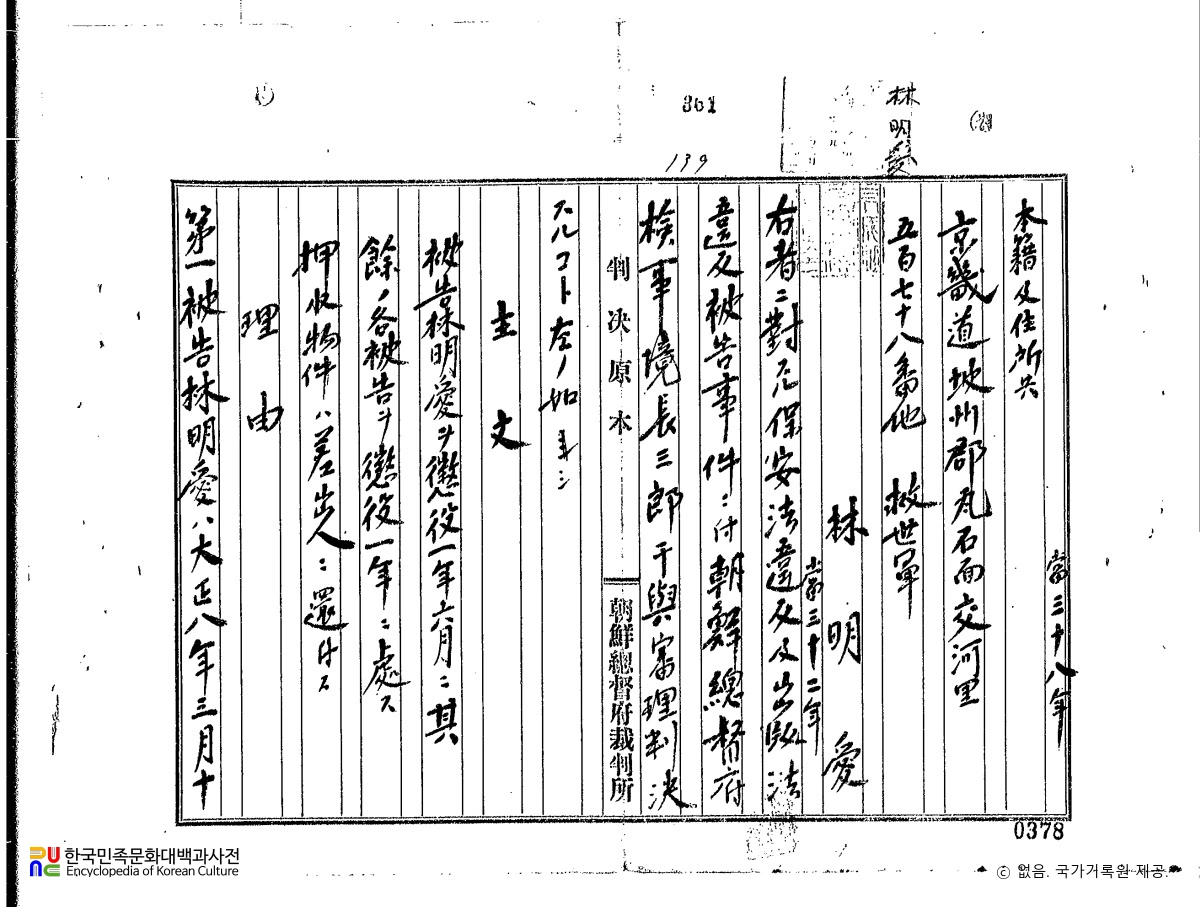 林明愛
361
139
當三十八年
本籍及住所共
京畿道坡州郡瓦石面交河里
五百七十八番地 救世軍
林明愛
當三十二年
右者ニ對スル保安法違反及出版法
違反被告事件ニ付朝鮮總督府
檢事境長三郎干與審理判決
判決原本
朝鮮總督府裁判所
スルコト左ノ如シ
主文
被告林明愛ヲ懲役一年六月ニ其
餘ノ各被告ヲ懲役一年ニ處ス
押收物件ハ差出人ニ還付ス
理由
第一被告林明愛ハ大正八年三月十
0378
한국민족문화대백과사전
Encyclopedia of Korean Culture
ⓒ 없음. 국가기록원 제공.